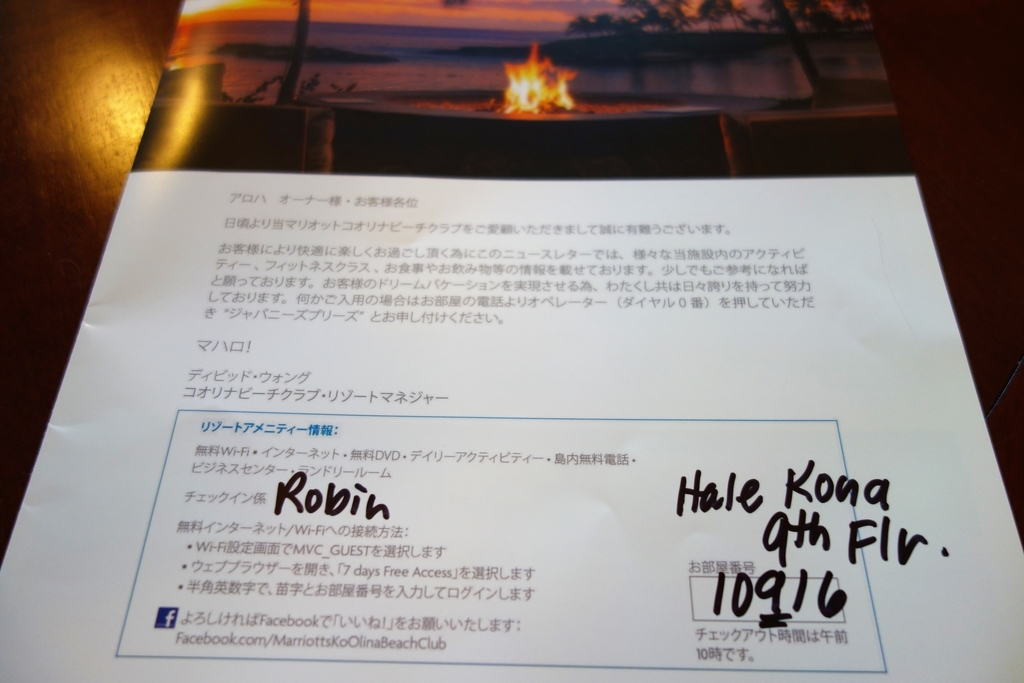 アロハ　オーナー様・お客様各位
日頃より当マリオットコオリナビーチクラブをご愛顧いただきまして誠に有難うございます。
お客様により快適に楽しくお過ごし頂く為にこのニュースレターでは、様々な当施設内のアクティビ
ティー、フィットネスクラス、お食事やお飲み物等の情報を載せております。少しでもご参考になれば
と願っております。お客様のドリームバケーションを実現させる為、わたくし共は日々誇りを持って努力
しております。何かご入用の場合はお部屋の電話よりオペレーター（ダイヤル０番）を押していただ
き "ジャパニーズプリーズ" とお申し付けください。
マハロ！
ディビッド・ウォング
コオリナビーチクラブ・リゾートマネジャー
リゾートアメニティー情報：
無料Wi-Fi・インターネット・無料DVD・デイリーアクティビティー・島内無料電話・
ビジネスセンター・ランドリールーム
チェックイン係 Robin
Hale Kona
9th Flr.
無料インターネット/Wi-Fiへの接続方法：
• Wi-Fi設定画面でMVC_GUESTを選択します
• ウェブブラウザーを開き、「7 days Free Access」を選択します
• 半角英数字で、苗字とお部屋番号を入力してログインします
お部屋番号
10916
チェックアウト時間は午前
10時です。
f よろしければFacebookで「いいね!」をお願いいたします：
Facebook.com/MarriottsKoOlinaBeachClub